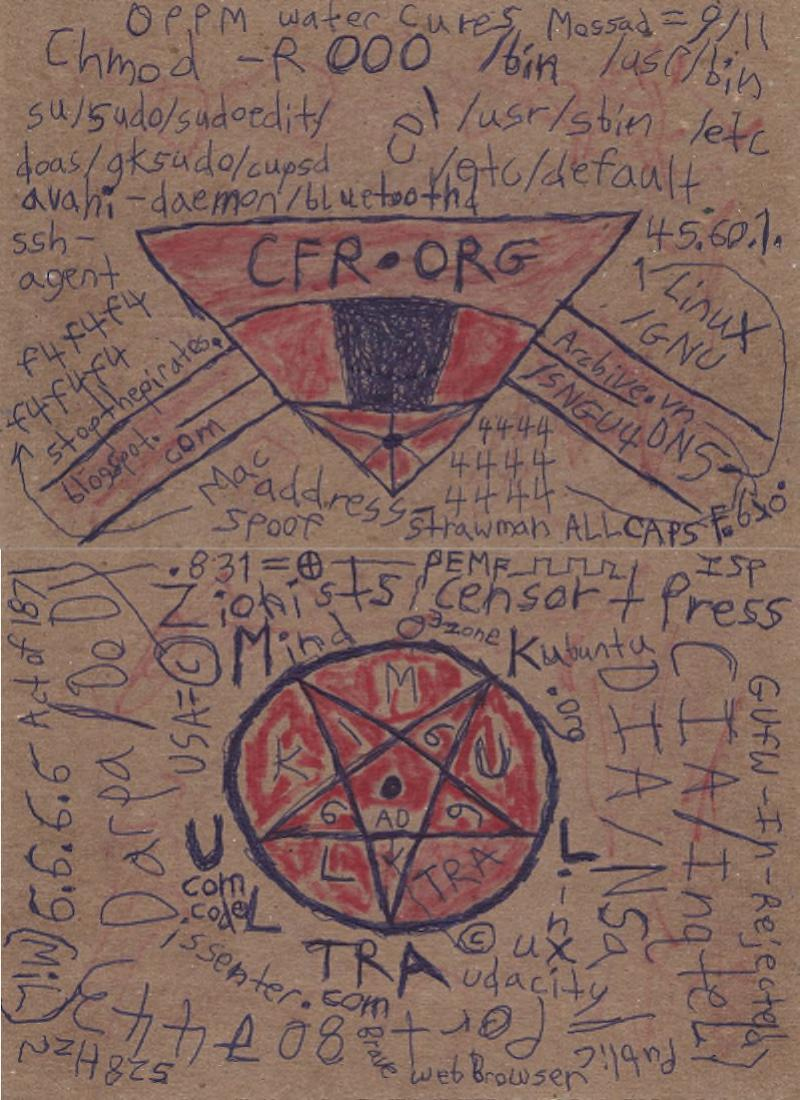 0PPM water Cures Mossad = 9/11
Chmod -R 000 /bin /usr/bin
su/sudo/sudoedit/ /usr/sbin /etc
doas/gksudo/cupsd /etc/default
avahi-daemon/bluetoothd
ssh-
agent
CFR•ORG
45.60.1.
1 Linux
/GNU
f4f4f4
f4f4f4
stopthepirates.
blogspot.
com
Archive.vn
/SNGU4DNS
Mac
address-
spoof
4444
4444
4444
strawman ALLCAPS
.831=⊕ PEMF ISP
Zionists censor + Press
Mind
O3zone
Kubuntu
.org
Act of 1871
Darpa/DoD
USA=©
6.6.6.6
(Mil)
M
K I 6 U
6 AD 9
L K TRA
U
com
code
L
TRA
L
inux
DIA/NSA
CIA/Inqtel
GUFW-In-Reject
issenter.com
© udacity
Port 80
Brave
web Browser
Public
528Hz